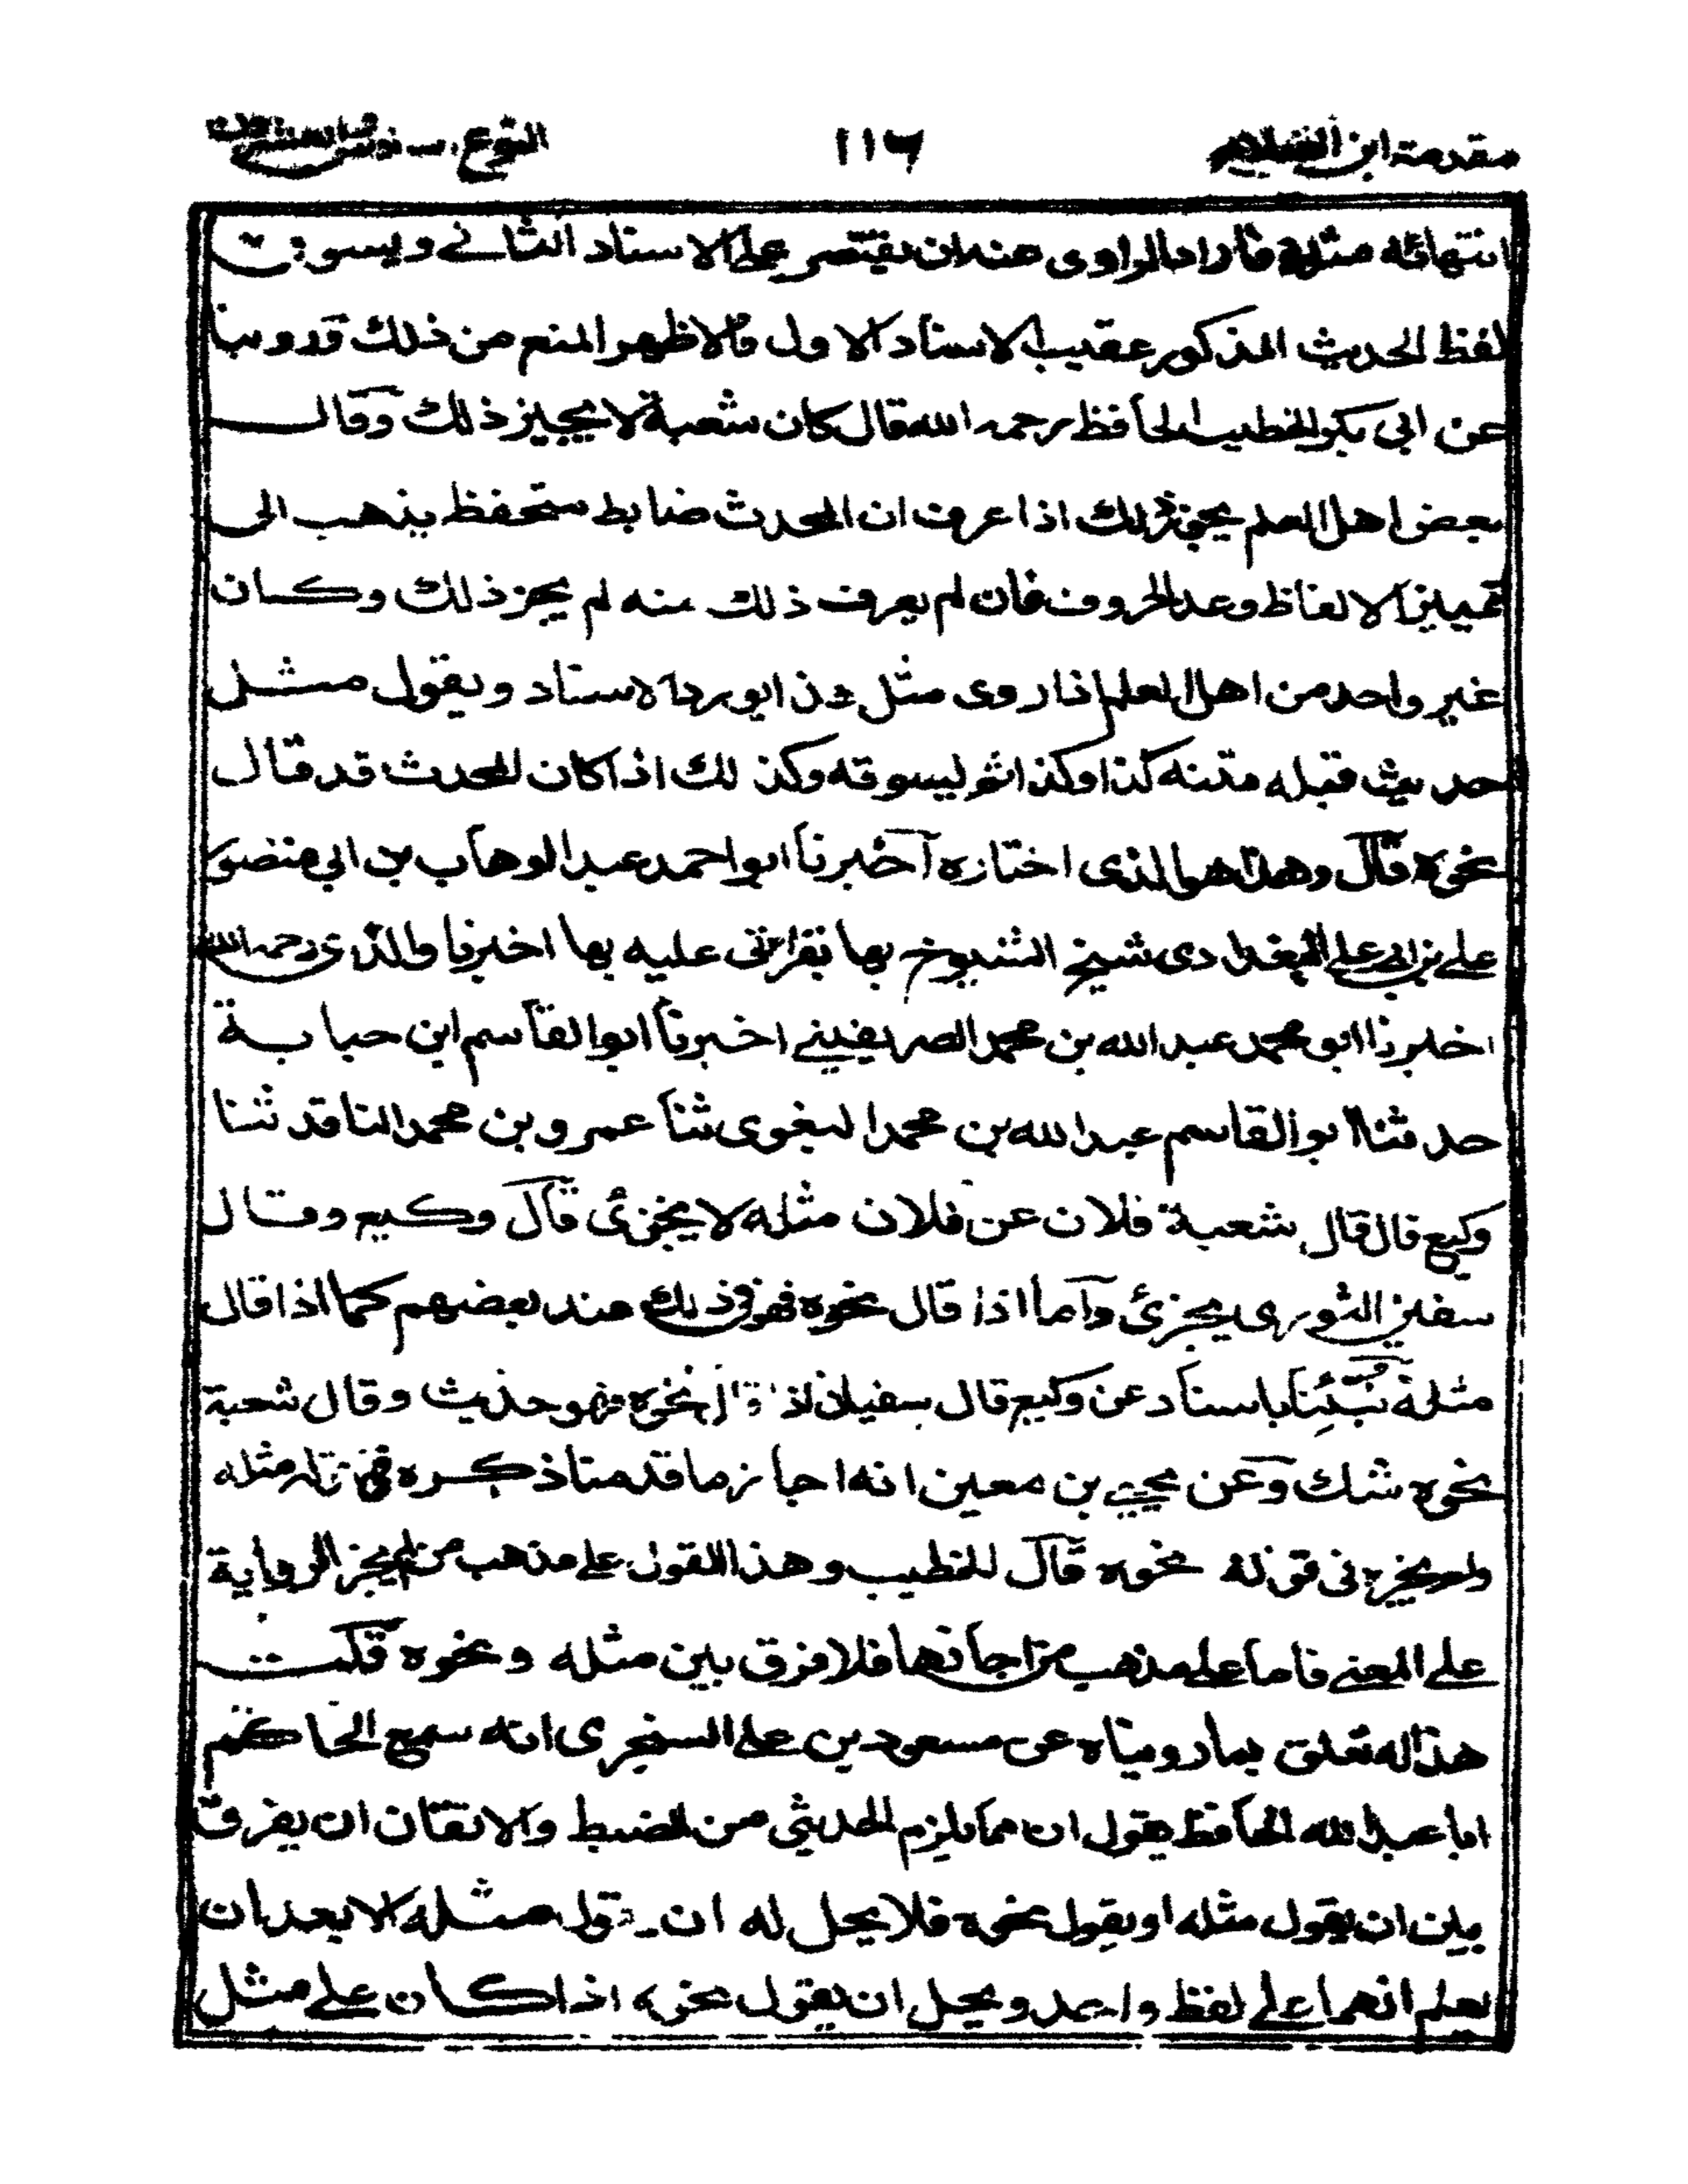 مقدمة ابن الصلاح ١١٦ النوع السادس والعشرون
انتهائه مثله فاراد الراوى عنه ان يقتصر على الاسناد الثانى ويسوق
لفظ الحديث المذكور عقيب الاسناد الاول فالاظهر المنع من ذلك وروينا
عن ابى بكر الخطيب الحافظ رحمه الله قال كان شعبة لا يجيز ذلك وقال
بعض اهل العلم يجوز ذلك اذا عرف ان المحدث ضابط متحفظ يذهب الى
تمييز الالفاظ وعد الحروف فان لم يعرف ذلك منه لم يجز ذلك وكان
غير واحد من اهل العلم اذا روى مثل هذا يورد الاسناد ويقول مثل
حديث قبله متنه كذا وكذا ثم يسوقه وكذلك اذا كان المحدث قد قال
نحوه قال وهذا هو الذى اختاره اخبرنا ابو احمد عبد الوهاب بن ابى منصور
على بن على البغدادى شيخ الشيوخ بها بقراءتى عليه بها اخبرنا والدى رحمه الله
اخبرنا ابو محمد عبد الله بن محمد الصريفينى اخبرنا ابو القاسم ابن حبابة
حدثنا ابو القاسم عبد الله بن محمد البغوى ثنا عمرو بن محمد الناقد ثنا
وكيع قال قال شعبة فلان عن فلان مثله لا يجزئ قال وكيع وقال
سفين الثورى يجزئ واما اذا قال نحوه فهو فى ذلك عند بعضهم كما اذا قال
مثله نبئنا باسناد عن وكيع قال سفيان اذا قال نحوه فهو حديث وقال شعبة
نحوه شك وعن يحيى بن معين انه اجاز ما قدمنا ذكره فى قوله مثله
ولم يجزه فى قوله نحوه قال الخطيب وهذا القول على مذهب من لم يجز الرواية
على المعنى فاما على مذهب من اجازها فلا فرق بين مثله ونحوه قلت
هذا له تعلق بما رويناه عن مسعود بن على السنجرى انه سمع الحاكم
ابا عبد الله الحافظ يقول ان مما يلزم الحديثى من الضبط والاتقان ان يفرق
بين ان يقول مثله او يقول نحوه فلا يحل له ان يقول مثله الا بعد ان
يعلم انهما على لفظ واحد ويحل ان يقول نحوه اذا كان على مثل